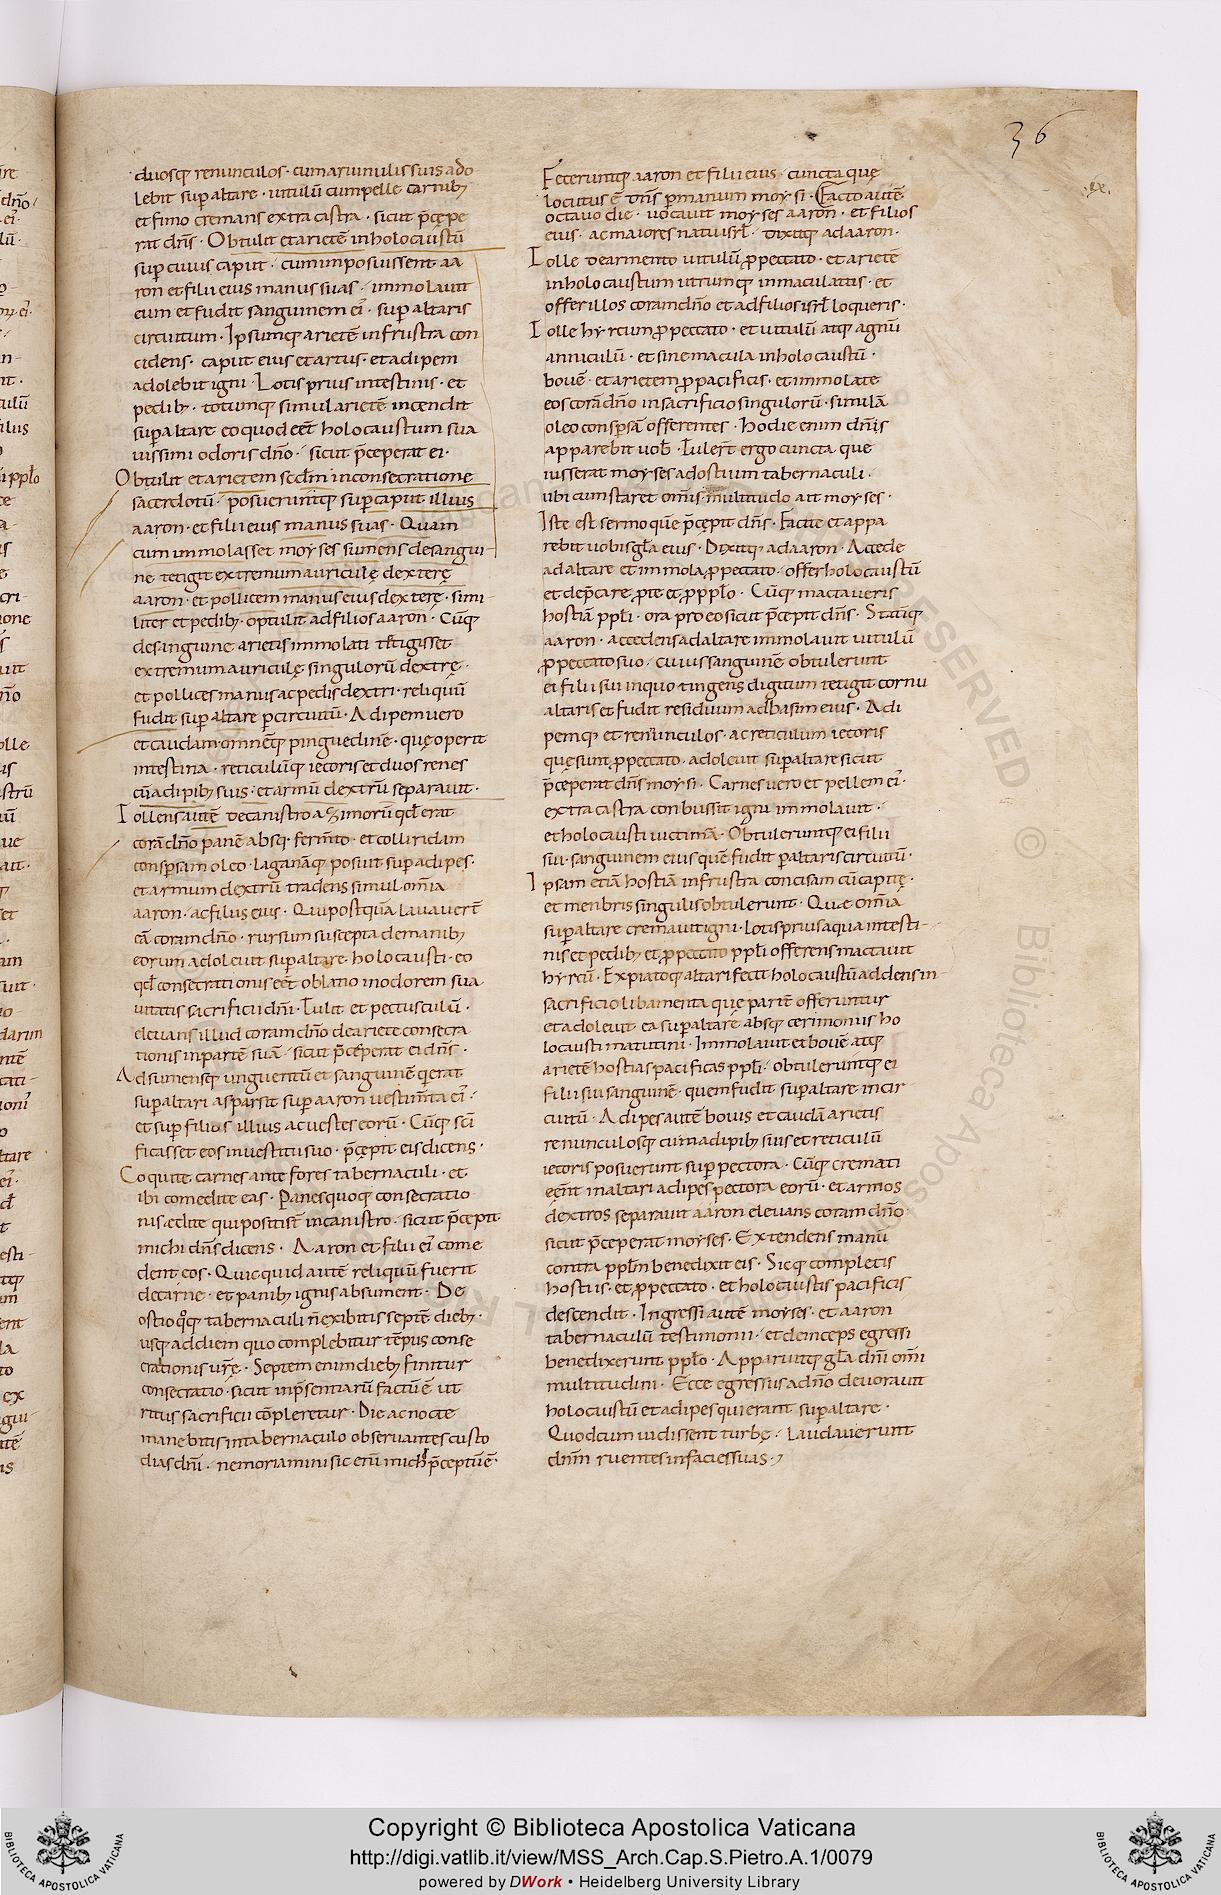 36
duosq; renunculos · cum aruinulis suis ado
lebit sup altare · uitulū cum pelle carnib;
et fimo cremans extra castra · sicut p̄cępe
rat dn̄s · Obtulit et arietē in holocaustū
sup cuius caput · cum imposuissent aa
ron et filii eius manus suas · immolauit
eum et fudit sanguinem ei' · sup altaris
circuitum · Ipsumq; arietē in frustra con
cidens · caput eius et artus · et adipem
adolebit igni · Lotis prius intestinis · et
pedib; · totumq; simul arietē incendit
sup altare eo quod eēt holocaustum sua
uissimi odoris dn̄o · sicut p̄ceperat ei ·
Obtulit et arietem scd̄m in consecratione
sacerdotū · posueruntq; sup caput illius
aaron · et filii eius manus suas · Quam
cum immolasset moyses sumens de sangui-
ne tetigit extremum auriculę dexterę
aaron · et pollicem manus eius dexterę · simi-
liter et pedib; · optulit ad filios aaron · Cūq;
de sanguine arietis immolati tetigisset
extremum auriculę singulorū dextrę ·
et pollices manus ac pedis dextri · reliquū
fudit sup altare p circuitū · Adipem uero
et caudam omnēq; pinguedinē · quę operit
intestina · reticulūq; iecoris et duos renes
cū adipib; suis · et armū dextrū separauit ·
Tollens autē de canistro azimorū qd̄ erat
corā dn̄o panē absq; fermto · et colliridam
conspsam oleo · laganāq; posuit sup adipes ·
et armum dextrū tradens simul om̄ia
aaron · ac filiis eius · Qui postquā lauauerē
eā coram dn̄o · rursum suscepta de manib;
eorum adoleuit sup altare holocausti · eo
qd̄ consecrationis eēt oblatio in odorem sua
uitatis sacrificii dn̄i · Tulit et pectusculū ·
eleuans illud coram dn̄o de ariete consecra
tionis in partē suā · sicut p̄ceperat ei dn̄s ·
Adsumensq; unguentū et sanguinē q erat
sup altari asparsit sup aaron uestimta ei' ·
et sup filios illius ac uestes eorū · Cūq; sc̄i
ficasset eos in uestitu suo · p̄cępit eis dicens ·
Coquite carnes ante fores tabernaculi · et
ibi comedite eas · Panes quoq; consecratio
nis ędite qui positi s̄t in canistro · sicut p̄cepit
michi dn̄s dicens · Aaron et filii ei' come
dent eos · Quicquid autē reliquū fuerit
de carne · et panib; ignis absument · De
ostio q̊q; tabernaculi n̄ exibitis septē dieb; ·
usq; ad diem quo complebitur tēpus conse
crationis ur̄ę · Septem enim dieb; finitur
consecratio · sicut in p̄sentiarū factū ē ut
ritus sacrificii cōpleretur · Die ac nocte
manebitis in tabernaculo obseruantes custo
dias dn̄i · ne moriamini sic enī michi p̄ceptū ē ·
Feceruntq; aaron et filii eius · cuncta quę
locutus ē dn̄s p manum moysi · Facto autē
octauo die · uocauit moyses aaron · et filios
eius · ac maiores natu isrl̄ · dixitq; ad aaron ·
Tolle de armento uitulū p peccato · et arietē
in holocaustum utrumq; inmaculatus · et
offer illos coram dn̄o et ad filios isrl̄ loqueris ·
Tolle hyrcum p peccato · et uitulū atq; agnū
anniculū · et sine macula in holocaustū ·
bouē · et arietem p pacificis · et immolate
eos corā dn̄o in sacrificio singulorū · similā
oleo conspsā offerentes · Hodie enim dn̄s
apparebit uob̄ · Tuler̄t ergo cuncta que
iusserat moyses ad ostium tabernaculi ·
ubi cum staret om̄is multitudo ait moyses ·
Iste est sermo quē p̄cępit dn̄s · Facite et appa
rebit uobis gl̄a eius · Dixitq; ad aaron · Accede
ad altare et immola p peccato · offer holocaustū
et dep̄care p te et p ppl̄o · Cūq; mactaueris
hostiā ppl̄i · ora pro eo sicut p̄cepit dn̄s · Statīq;
aaron · accedens ad altare immolauit uitulū
p peccato suo · cuius sanguinē obtulerunt
ei filii sui in quo tingens digitum tetigit cornu
altaris et fudit residuum ad basim eius · Adi
pemq; et renunculos · ac reticulum iecoris
quę sunt p peccato · adoleuit sup altare sicut
p̄ceperat dn̄s moysi · Carnes uero et pellem ei' ·
extra castra conbussit igni immolauit ·
et holocausti uictimā · Obtuleruntq; ei filii
sui · sanguinem eius quē fudit p altaris circuitū ·
Ipsam etiā hostiā in frustra concisam cū capitę ·
et menbris singulis obtulerunt · Quæ om̄ia
sup altare cremauit igni · lotis prius aqua intesti-
nis et pedib; et p peccato ppl̄i offerens mactauit
hyrcū · Expiatoq; altari fecit holocaustū addens in-
sacrificio libamenta quę parit̄ offeruntur
et adoleuit ea sup altare absq; cerimoniis ho
locausti matutini · Immolauit et bouē atq;
arietē hostias pacificas ppl̄i · obtuleruntq; ei
filii sui sanguinē · quem fudit sup altare in cir
cuitū · Adipes autē bouis et caudā arietis
renunculosq; cum adipib; suis et reticulū
iecoris posuerunt sup pectora · Cūq; cremati
eēnt in altari adipes pectora eorū · et armos
dextros separauit aaron eleuans coram dn̄o
sicut p̄ceperat moyses · Extendens manū
contra ppl̄m benedixit eis · Sicq; completis
hostiis · et p peccato · et holocaustis pacificis
descendit · Ingressi autē moyses · et aaron
tabernaculū testimonii · et deinceps egressi
benedixerunt ppl̄o · Apparuitq; gl̄a dn̄i om̄i
multitudini · Ecce egressus a dn̄o deuorauit
holocaustū et adipes qui erant sup altare ·
Quod cum uidissent turbę · laudauerunt
dn̄m ruentes in facies suas ·
Copyright © Biblioteca Apostolica Vaticana
http://digi.vatlib.it/view/MSS_Arch.Cap.S.Pietro.A.1/0079
powered by DWork • Heidelberg University Library